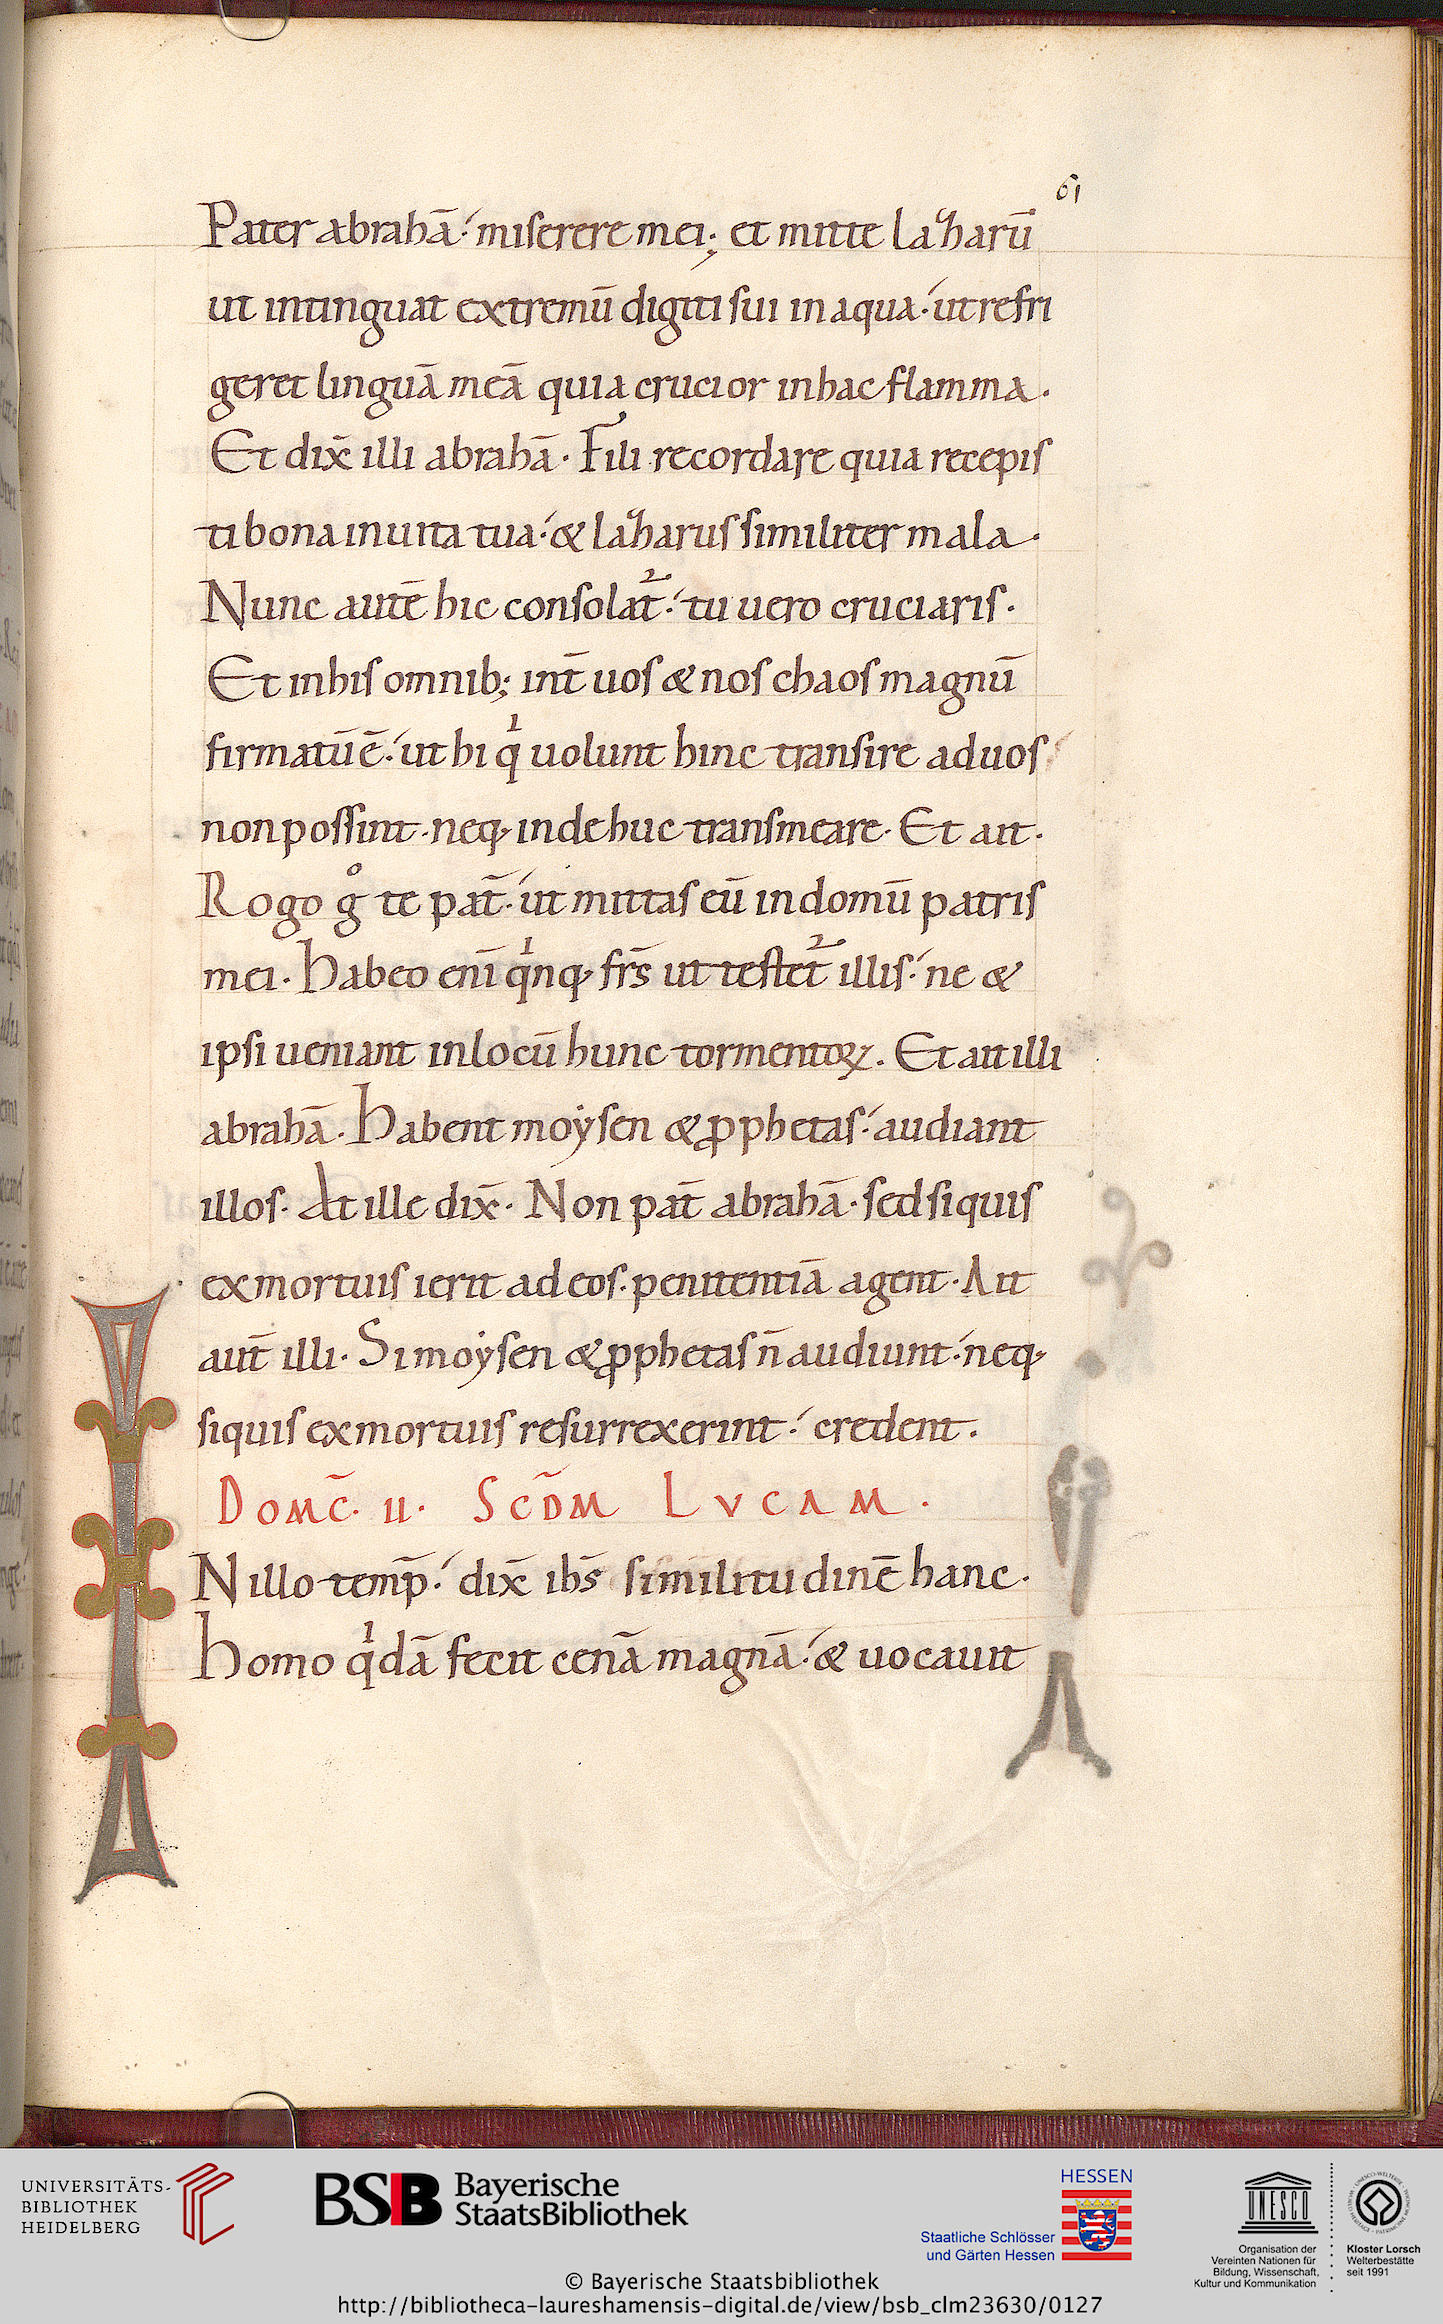 61
Pater abrahā· miserere mei; et mitte Lazharū
ut intinguat extremū digiti sui in aqua· ut refri
geret linguā meā quia crucior in hac flamma·
Et dix̄ illi abrahā· Fili recordare quia recepis
ti bona in uita tua· & lazharus similiter mala·
Nunc autē hic consolat᷑· tu uero cruciaris·
Et in his omnib; int̄ uos & nos chaos magnū
firmatū ē· ut hi qͥ uolunt hinc transire ad uos
non possint· neq; inde huc transmeare· Et ait·
Rogo gͦ te pat̄· ut mittas eū in domū patris
mei· Habeo enī qͥnq; fr̄s ut testet᷑ illis· ne &
ipsi ueniant in locū hunc tormentoꝝ· Et ait illi
abrahā· Habent moẏsen & ꝓphetas· audiant
illos· At ille dix̄· Non pat̄ abrahā· sed si quis
ex mortuis ierit ad eos· penitentiā agent· Ait
aut̄ illi· Si moẏsen & ꝓphetas n̄ audiunt· neq;
si quis ex mortuis resurrexerint· credent·
DOMC̄· II· SCD̄M LVCAM·
IN illo temp̄· dix̄ ih̄s similitudinē hanc·
Homo qͥdā fecit cenā magnā· & uocauit
UNIVERSITÄTS-
BIBLIOTHEK
HEIDELBERG
BSB Bayerische
StaatsBibliothek
HESSEN
Staatliche Schlösser
und Gärten Hessen
UNESCO
Organisation der
Vereinten Nationen für
Bildung, Wissenschaft,
Kultur und Kommunikation
Kloster Lorsch
Welterbestätte
seit 1991
© Bayerische Staatsbibliothek
http://bibliotheca-laureshamensis-digital.de/view/bsb_clm23630/0127